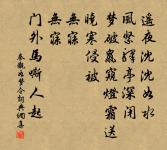 遥夜沈沈如水
風緊驛亭深閉
夢破鼠窺燈霜送
曉寒侵被
無寐
無寐
門外馬嘶人起
秦觀如夢令